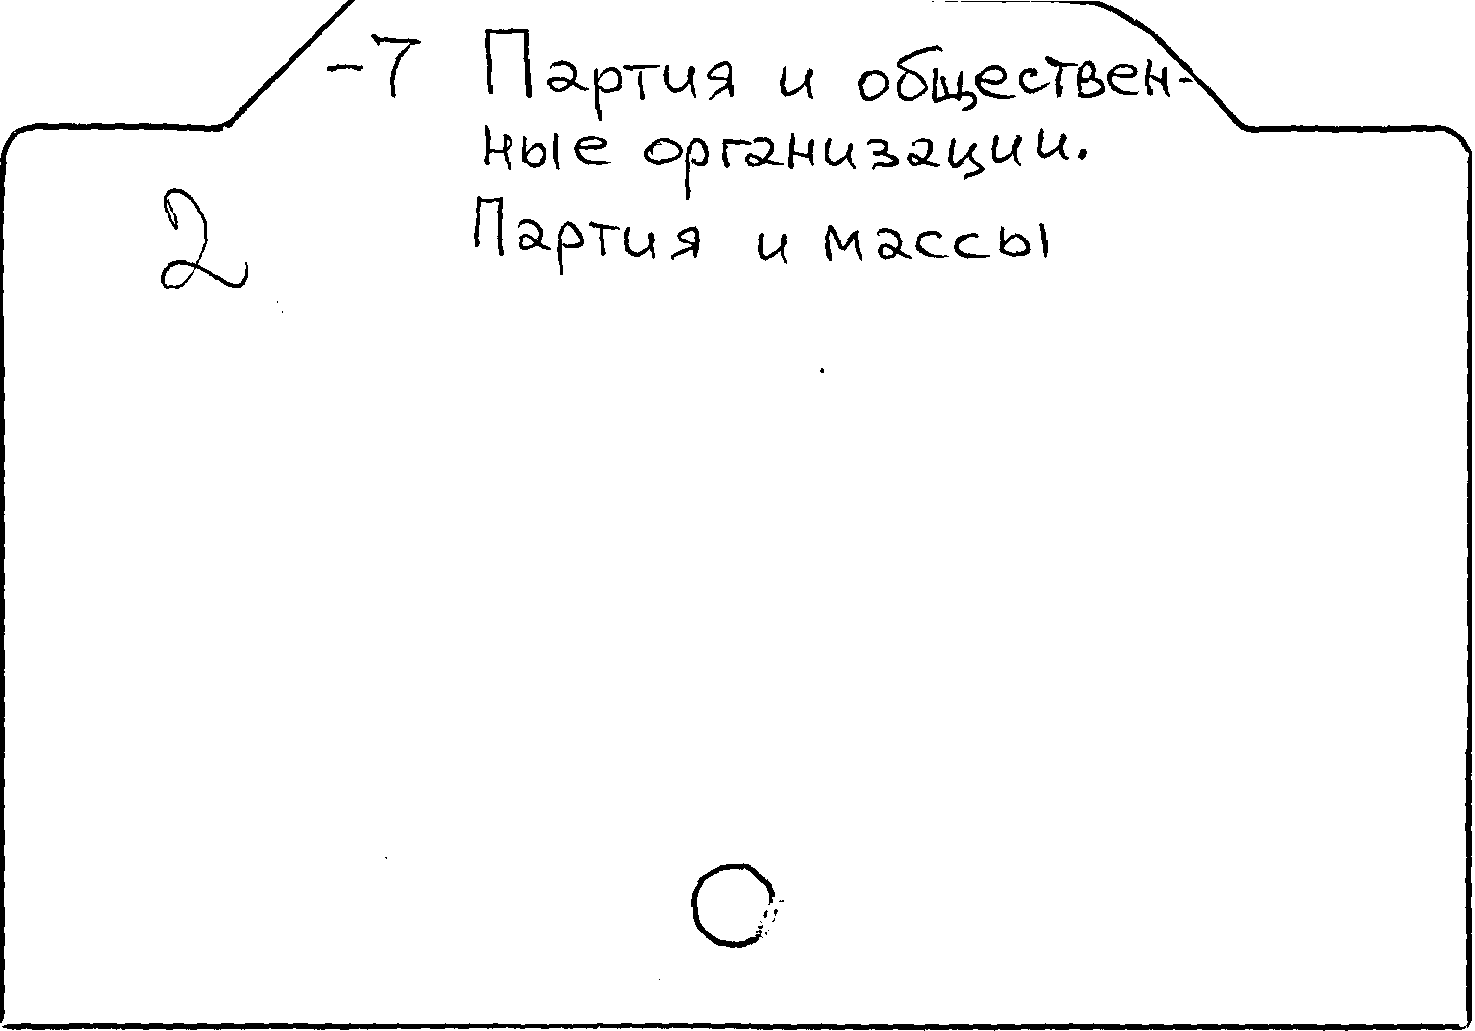 -7 Партия и обществен-
ные организации.
2 Партия и массы